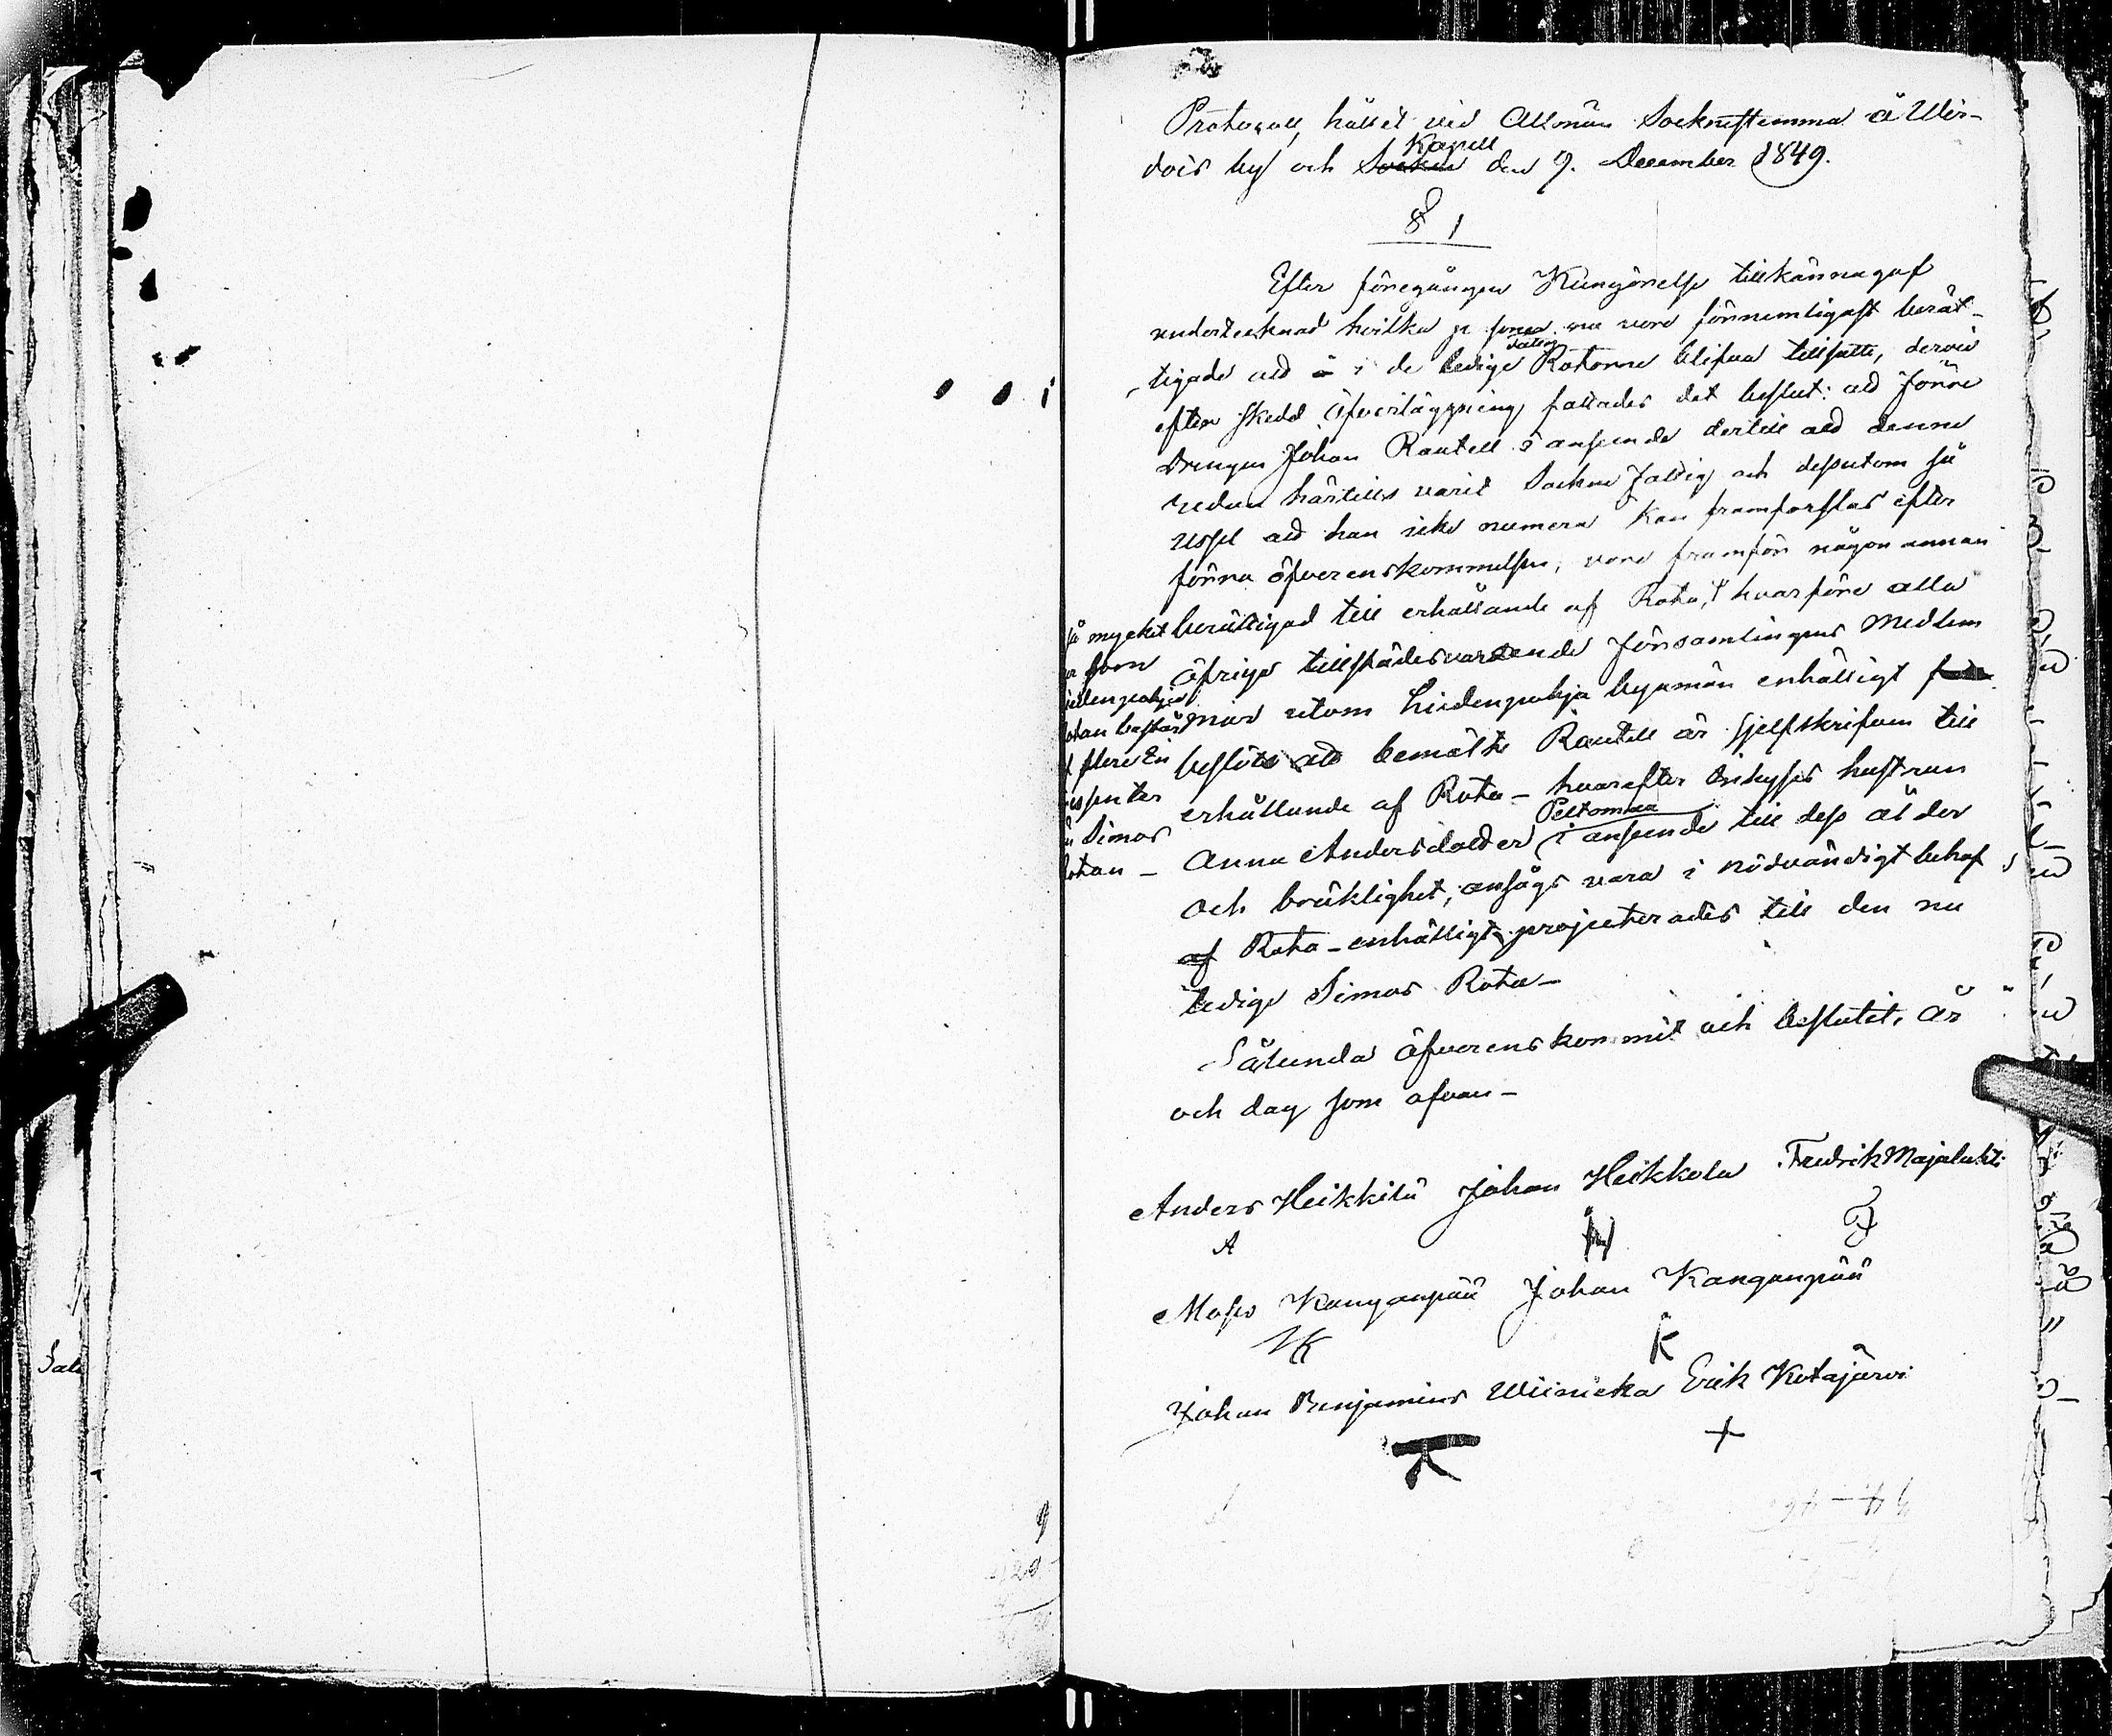 Protocoll, hållit vid Allmän Socknestemma å Wir-
dois by och Socken Kapell den 9. December 1849.
§ 1
Efter föregången Kungörelse tillkännagaf
undertecknad hvilka nu vore förnemligast berät-
tigade att i de ledige Rotorne blifva tillsatte, dervid
efter skedd öfverläggning fattades det beslut: att förre
Drengen Johan Rautell i anseende dertill att denne
redan härtills varit Socknen fallig och dessutom så
ussel att han icke numera kan framforslas efter
förra öfverenskommelsen, vore framför någon annan
berättigad till erhållande af Rota, hvarföre alla
öfriga tillstädesvarande Församlingens Medlem
mar utom Liedenpohja byamän enhälligt
beslöto att bemälte Rautell är sjelfskrifven till
erhållande af Rota – hvarefter Inhyses hustrun
Anna Andersdotter Peltomaa i anseende till dess ålder
och bräklighet, ansågs vara i nödvändigt behof
af Rota – enhälligt projecterades till den nu
ledige Simos Rota –
Sålunda öfverenskommit och beslutit, År
och dag som ofvan –
så mycket
som
iedenpohja
otan består
flere En
Simos
otan –
Anders Heikkilä Johan Heikkola Fredrik Majalahti
A H F
Moses Kangaspää Johan Kangaspää
MK K
Johan Benjamins Wiinicka Erik Kotajärvi
+
Sal